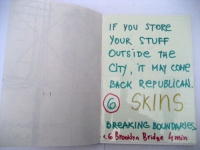 IF YOU STORE
YOUR STUFF
OUTSIDE THE
CITY, IT MAY COME
BACK REPUBLICAN.
6 SKINS
BREAKING BOUNDARIES
Bridge